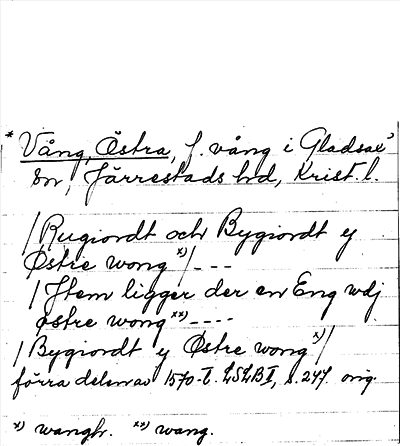 * Vång, Östra, f. vång i Gladsax'
sn, Järrestads hd, Krist. l.
/ Rugiordt och Bygiordt y
Østre wong x) / - - -
/ Jtem ligger der en Eng wdj
østre wong xx) - - - -
/ Bygiordt y Østre wong x) /
förra delen av 1570-t. LSLB I, s. 247. orig.
x) wangh. xx) wang.